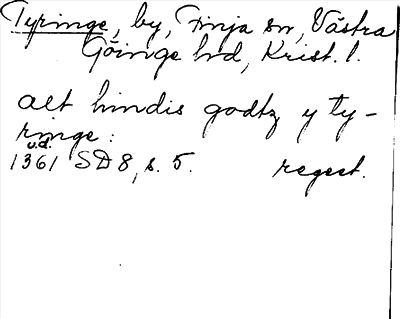 Tyringe, by, Finja sn, Västra
Göinge hd, Krist. l.
alt hindis godtz y ty-
ringe:
u.d.
1361 SD 8, s. 5. regest.